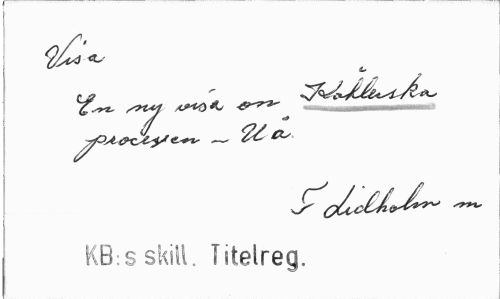 Visa
En ny visa om Kåhlerska
processen – U å.
F Lidholm m
KB:s skill. Titelreg.